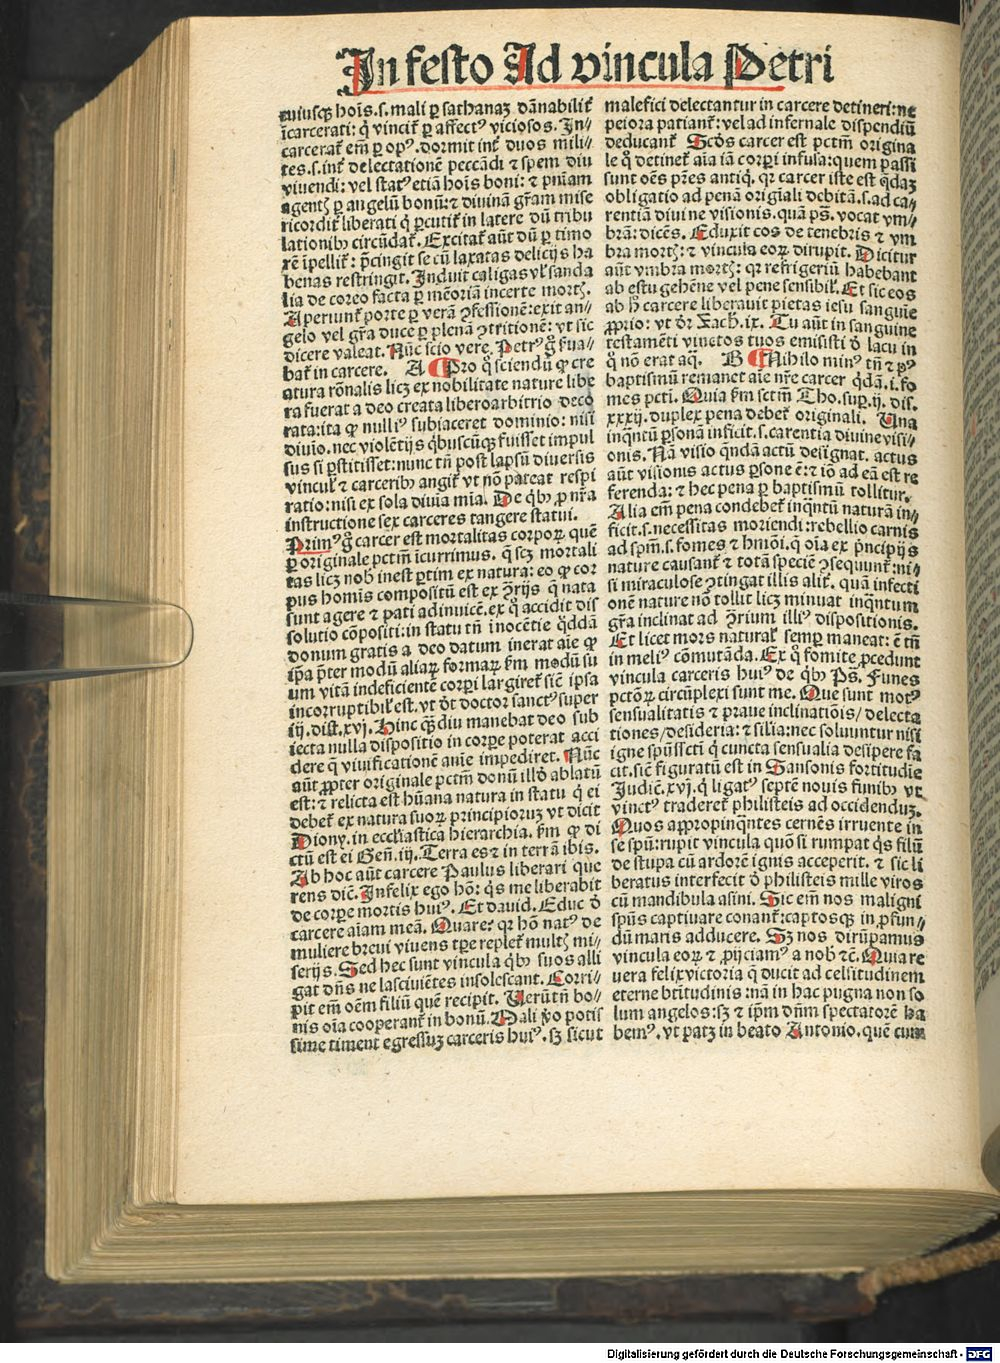 In festo Ad vincula Petri
cuiusqꝫ hoīs.s.mali ꝑ sathanaꝫ dānabiliť
īcarceraťi: q̇ vinciť ꝑ affectꝰ viciosos. In⸗
carceraťͬ em̄ ꝑ opꝰ.dormit inť duos mili⸗
tes.s.inť delectationē peccādi ⁊ spem diu
viuendi: vel statꝰ etiā hoīs boni: ⁊ pn̄iam
agentꝭ ꝑ angelū bonū: ⁊ diuinā gr̄am mise
ricordiť liberati q̇ ꝑcutiť in latere dū tribu
lationibꝰ circūdať. Excitať aūt dū ꝑ timo
rē īpelliť: p̄cingit se cū laxatas delicijs ha
benas restringit. Induit caligas vľ sanda
lia de coreo facta ꝑ mēoriā incerte mortꝭ.
Aperiunť porte ꝑ verā ꝯfessionē: exit an⸗
gelo vel gr̄a duce ꝑ plenā ꝯtritionē: vt sic
dicere valeat. Nūc scio vere. Petrꝰ g̊ ẜua⸗
bať in carcere. A ¶ Pro qͦ sciendū ꝙ cre
atura rōnalis licꝫ ex nobilitate nature libe
ra fuerat a deo creata liberoarbitrio deco
rata: ita ꝙ nulliꝰ subiaceret dominio: nisi
diuio. nec violētijs q̇buscūqꝫ fuisset impul
sus si ꝑstitisset: nunc tn̄ post lapsū diuersis
vincuľ ⁊ carceribꝰ angiť vt nō pateat respi
ratio: nisi ex sola diuīa mīa. De q̇bꝰ ꝓ nr̄a
instructione sex carceres tangere statui.
Primꝰ g̊ carcer est mortalitas corporꝝ quē
ꝑ originale pctm̄ īcurrimus. q̄ scꝫ mortali
tas licꝫ nob̄ inest ꝑtim ex natura: eo ꝙ cor
pus homīs compositū est ex ꝯ̄rijs q̄ nata
sunt agere ⁊ pati adinuicē. ex qͦ accidit dis
solutio cōpositi: in statu tn̄ inocētie q̇ddā
donum gratis a deo datum inerat aīe ꝙ
ip̄a p̄ter modū aliaꝝ formaꝝ ẜm modū su
um vitā indeficientē corꝑi largireť siē ipsa
incorruptibiľ est. vt dt̄ doctor sanctꝰ super
iij. dist. xvj. Hinc qͣꝫdiu manebat deo sub
iecta nulla dispositio in corꝑe poterat acci
dere q̄ viuificationē aīe impediret. Nūc
aūt ꝓpter originale pctm̄ donū illḋ ablatū
est: ⁊ relicta est hūana natura in statu q̇ ei
debeť ex natura suoꝝ principioruꝫ vt dicit
Diony. in eccľiastica hierarchia. ẜm ꝙ di
ctū est ei Geñ. iij. Terra es ⁊ in terrā ibis.
Ab hoc aūt carcere Paulus liberari que
rens dic̄. Infelix ego hō: q̇s me liberabit
de corꝑe mortis huiꝰ. Et dauid. Educ ḋ
carcere aīam meā. Quare: qꝛ hō natꝰ de
muliere breui viuens tꝑe repleť multꝭ mi⸗
serijs. Sed hec sunt vincula q̇bꝰ suos alli
gat dn̄s ne lasciuiētes insolescant. Corri⸗
pit em̄ oēm filiū quē recipit. Verūtn̄ bo⸗
nis oīa cooperanť in bonū. Mali v̊o potis
sime timent egressuꝫ carceris huiꝰ. sꝫ sicut
malefici delectantur in carcere detineri: ne
peiora patianť: vel ad infernale dispendiū
deducanť. Scḋs carcer est pctm̄ origina
le qͦ detineť aīa iā corꝑi infusa: quem passi
sunt oēs pr̄es antiq̇. qꝛ carcer iste est q̇daꝫ
obligatio ad penā origīali debitā. s. ad ca⸗
rentiā diuine visionis. quā ps̄. vocat vm⸗
brā: dicēs. Eduxit eos de tenebris ⁊ vm
bra mortꝭ: ⁊ vincula eoꝝ dirupit. Dicitur
aūt vmbra mortꝭ: qꝛ refrigeriū habebant
ab estu gehēne vel pene sensibiľ. Et sic eos
ab h̊ carcere liberauit pietas iesu sanguīe
ꝓprio: vt dr̄ Zach. ix. Tu aūt in sanguine
testamēti vinctos tuos emisisti ḋ lacu in
qͦ nō erat aq̄. B ¶ Nihilo minꝰ tn̄ ⁊ pꝰ
baptismū remanet aīe nr̄e carcer q̇dā. i. fo
mes pcti. Quia ẜm sctm̄ Tho. suꝑ. ij. dis.
xxxij. duplex pena debeť originali. Una
inqͣntū ꝑsonā inficit. s. carentia diuine visi⸗
onis. Nā visio qn̄dā actū desīgnat. actus
aūt visionis actus ꝑsone ē: ⁊ iō ad eā est re
ferenda: ⁊ hec pena ꝑ baptismū tollitur.
Alia em̄ pena condebeť inqͣntū naturā in⸗
ficit. s. necessitas moriendi: rebellio carnis
ad spm̄. s. fomes ⁊ hmōi. q̄ oīa ex p̄ncipijs
nature causanť ⁊ totā speciē ꝯsequunť: ni⸗
si miraculose ꝯtingat illis aliť. quā infecti
onē nature nō tollit licꝫ minuat inqͣntum
gr̄a inclinat ad ꝯ̄rium illiꝰ dispositionis.
Et licet mors naturaľ semꝑ maneat: ē tn̄
in meliꝰ cōmutāda. Ex qͦ fomite ꝓcedunt
vincula carceris huiꝰ de q̇bꝰ Ps̄. Funes
pctōꝝ circūplexi sunt me. Que sunt motꝰ
sensualitatis ⁊ praue inclinatiōis/ delecta
tiones/ desideria: ⁊ silia: nec soluuntur nisi
igne spūsscti q̇ cuncta sensualia desipere fa
cit. siē figuratū est in Sansonis fortitudīe
Judic̄. xvj. q̇ ligatꝰ septē nouis funibꝰ vt
vinctꝰ tradereť philisteis ad occidenduꝫ.
Quos appropinqͣntes cernēs irruente in
se spū: rupit vincula quō si rumpat q̇s filū
de stupa cū ardorē ignis acceperit. ⁊ sic li
beratus interfecit ḋ philisteis mille viros
cū mandibula asini. Sic em̄ nos maligni
spūs captiuare conanť: captosqꝫ in ꝓfun⸗
dū maris adducere. Sꝫ nos dirūpamus
vincula eoꝝ ⁊ ꝓijciamꝰ a nob̄ ⁊c̄. Quia re
uera felix victoria q̄ ducit ad celsitudinem
eterne btītudinis: nā in hac pugna non so
lum angelos: sꝫ ⁊ ip̄m dn̄m spectatorē ha
bemꝰ. vt patꝫ in beato Antonio. quē cum
Digitalisierung gefördert durch die Deutsche Forschungsgemeinschaft - DFG